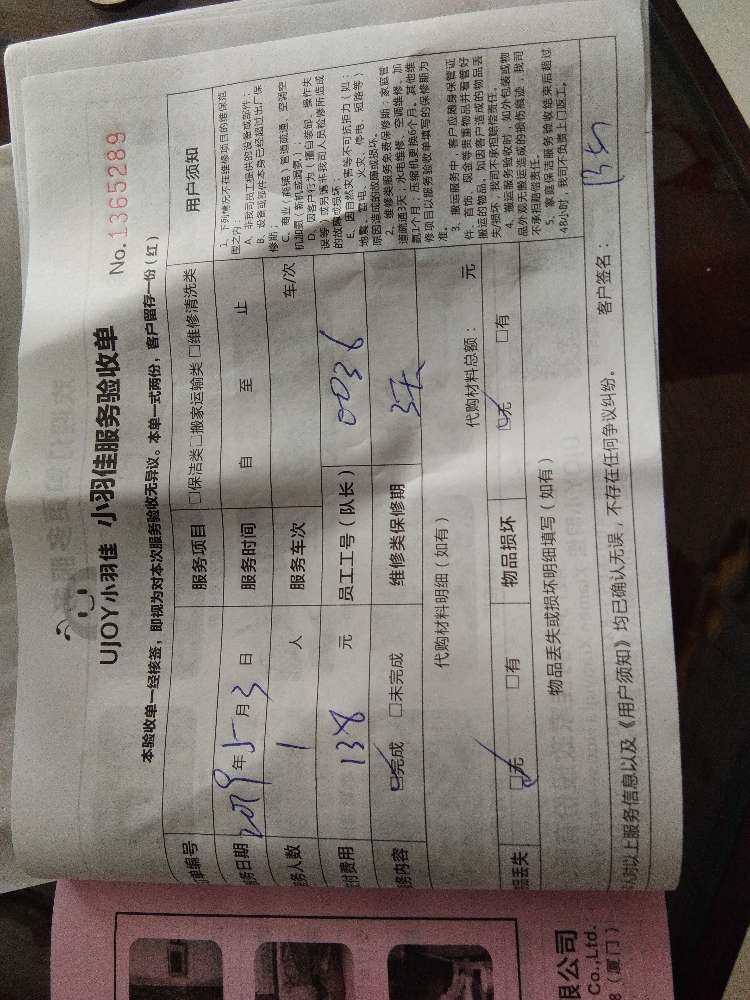 UJOY小羽佳 小羽佳服务验收单
No. 1365289
本验收单一经核签，即视为对本次服务验收无异议。本单一式两份，客户留存一份（红）
单编号
服务项目 □保洁类□搬家运输类□维修清洗类
用户须知
务日期 2019年5月3日
服务时间 自 至 止
务人数 1 人
服务车次 车/次
付费用 138 元
员工工号（队长） 0036
务内容 □完成 □未完成
维修类保修期 3天
代购材料明细（如有）
代购材料总额： 元
品丢失 □无 □有
物品损坏 □无 □有
物品丢失或损坏明细填写（如有）
1、下列情况不在维修项目的维保范
围之内：
A、非我司员工提供的设备或部件；
B、设备或部件本身已经超过出厂保
修期；
C、商业（商铺）管道疏通、空调空
机加氨（新机或漏氨）；
D、因客户行为（擅自装卸、操作失
误等）或另请非我司人员检修所造成
的故障或损坏；
E、因自然灾害等不可抗拒力（如：
地震、雷电、火灾、停电、短路等）
原因造成的故障或损坏。
2、维修类服务免费保修期：家庭管
道疏通3天；水电维修、空调维修、加
氨1个月；压缩机更换6个月。其他维
修项目以服务验收单填写的保修期为
准。
3、搬运服务中，客户应随身保管证
件、首饰、现金等贵重物品并看管好
搬运的物品，如因客户造成的物品丢
失/损坏，我司不承担赔偿责任。
4、搬运服务验收时，如外包装或物
品外观无搬运造成的损伤痕迹，我司
不承担赔偿责任。
5、家庭保洁服务验收结束后超过
48小时，我司不负责上门返工。
认对以上服务信息以及《用户须知》均已确认无误，不存在任何争议纠纷。 客户签名：
限公司
Co.,Ltd.
（厦门）